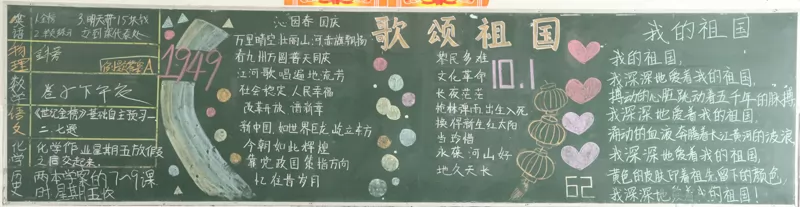 英语
1.金榜 3.明天带15块钱
到课代表处
物理
金榜
A
数学
卷子下午交
语文
《世纪金榜》基础自主预习一
二、七遍
化学
化学作业星期五放假
之前交起来.
历史
两本学案的7~9课
时星期五收
1949
沁园春 国庆
万里晴空,壮丽山河,赤旗飘扬
看九州方圆,普天同庆
江河歌唱,遍地流芳
社会稳定 人民幸福
改革开放 谱新章
新中国,如世界巨龙,屹立东方
今朝如此辉煌
靠党政国策指方向
忆往昔岁月
歌颂祖国
黎民多难
文化革命
长夜茫茫
枪林弹雨,出生入死
换得新生红太阳
当珍惜
永葆河山好
地久天长
10.1
62
我的祖国
我的祖国,
我深深地爱着我的祖国,
搏动的心脏跳动着五千年的脉搏
我的祖国,
我深深地爱着我的祖国,
涌动的血液奔腾着长江黄河的波浪
我的祖国,
我深深地爱着我的祖国,
黄色的皮肤印着祖先留下的颜色,
我深深地爱着我的祖国!